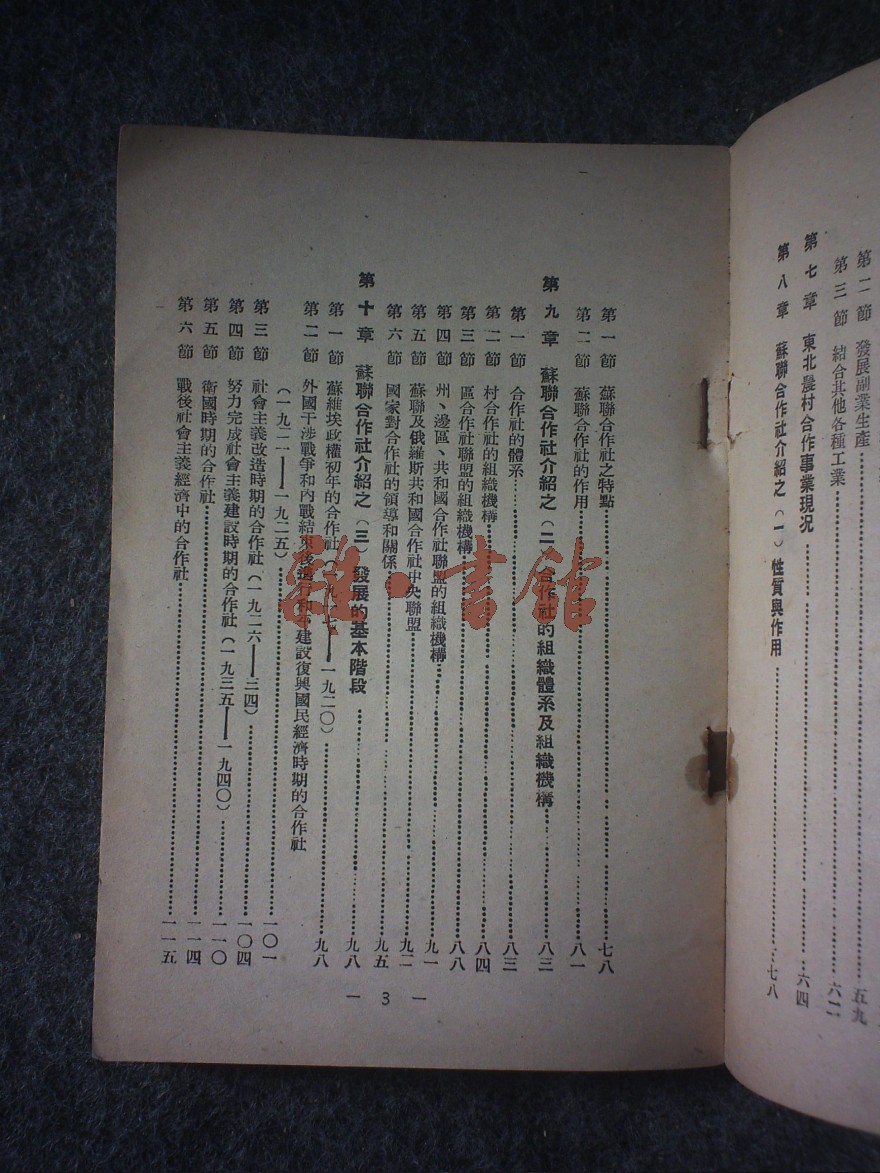 第二節 發展副業生產……五九
第三節 結合其他各種工業……六二
第七章 東北農村合作事業現況……六四
第八章 蘇聯合作社介紹之(一)性質與作用……七八
第一節 蘇聯合作社之特點……七八
第二節 蘇聯合作社的作用……八一
第九章 蘇聯合作社介紹之(二)合作社的組織體系及組織機構……八三
第一節 合作社的體系……八三
第二節 村合作社的組織機構……八四
第三節 區合作社聯盟的組織機構……八八
第四節 州、邊區、共和國合作社聯盟的組織機構……九一
第五節 蘇聯及俄羅斯共和國合作社中央聯盟……九二
第六節 國家對合作社的領導和關係……九五
第十章 蘇聯合作社介紹之(三)發展的基本階段……九八
第一節 蘇維埃政權初年的合作社(一九一七——一九二〇)……九八
第二節 外國干涉戰爭和內戰結束後進行和平建設復興國民經濟時期的合作社
(一九二一——一九二五)……一〇一
第三節 社會主義改造時期的合作社(一九二六——三四)……一〇四
第四節 努力完成社會主義建設時期的合作社(一九三五——一九四〇)……一一〇
第五節 衛國時期的合作社……一一四
第六節 戰後社會主義經濟中的合作社……一一五
— 3 —
雜·書館